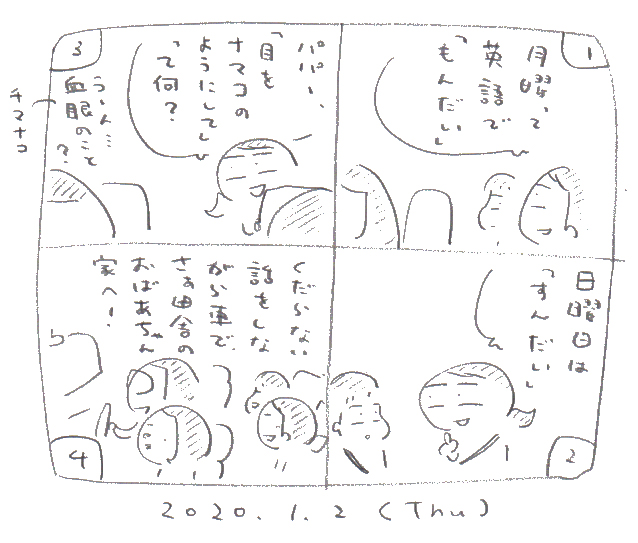 1
月曜って
英語で
「もんだい」
2
日曜日は
「すんだい」
3
パパー、
「目を
ナマコの
ようにして」
って何?
うーん…
血眼のこと
?
チマナコ
4
くだらない
話をしな
がら車で、
さぁ田舎の
おばあちゃん
家へー!
2020.1.2(Thu)